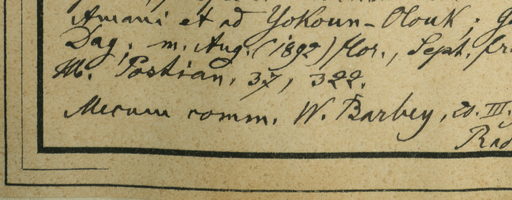 Amani et ad Yokoun-Olouk; G
Dag; m. Aug. (1892) flor., Sept. fr
M. Postian, 37, 322.
Mecum comm. W. Barbey, 20. III.
Rad